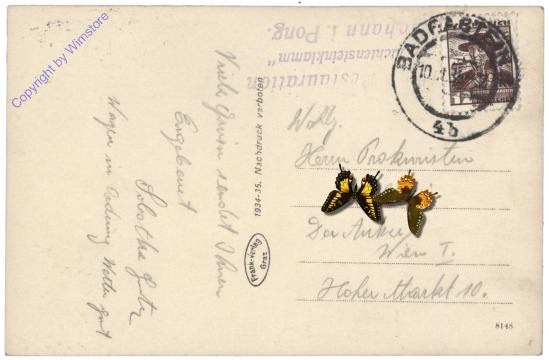 Copyright by Wimstore
Restauration
"Liechtensteinklamm"
St. Johann i. Pong.
BADGASTEIN
4b
Viele Grüsse sendet Ihnen
Ergebenst
Wagen in Ordnung Wetter gut
1934-35. Nachdruck verboten
Frank-Verlag
Graz
Herrn Prokuristen
Der Anker
Wien I.
Hoher Markt 10.
8148